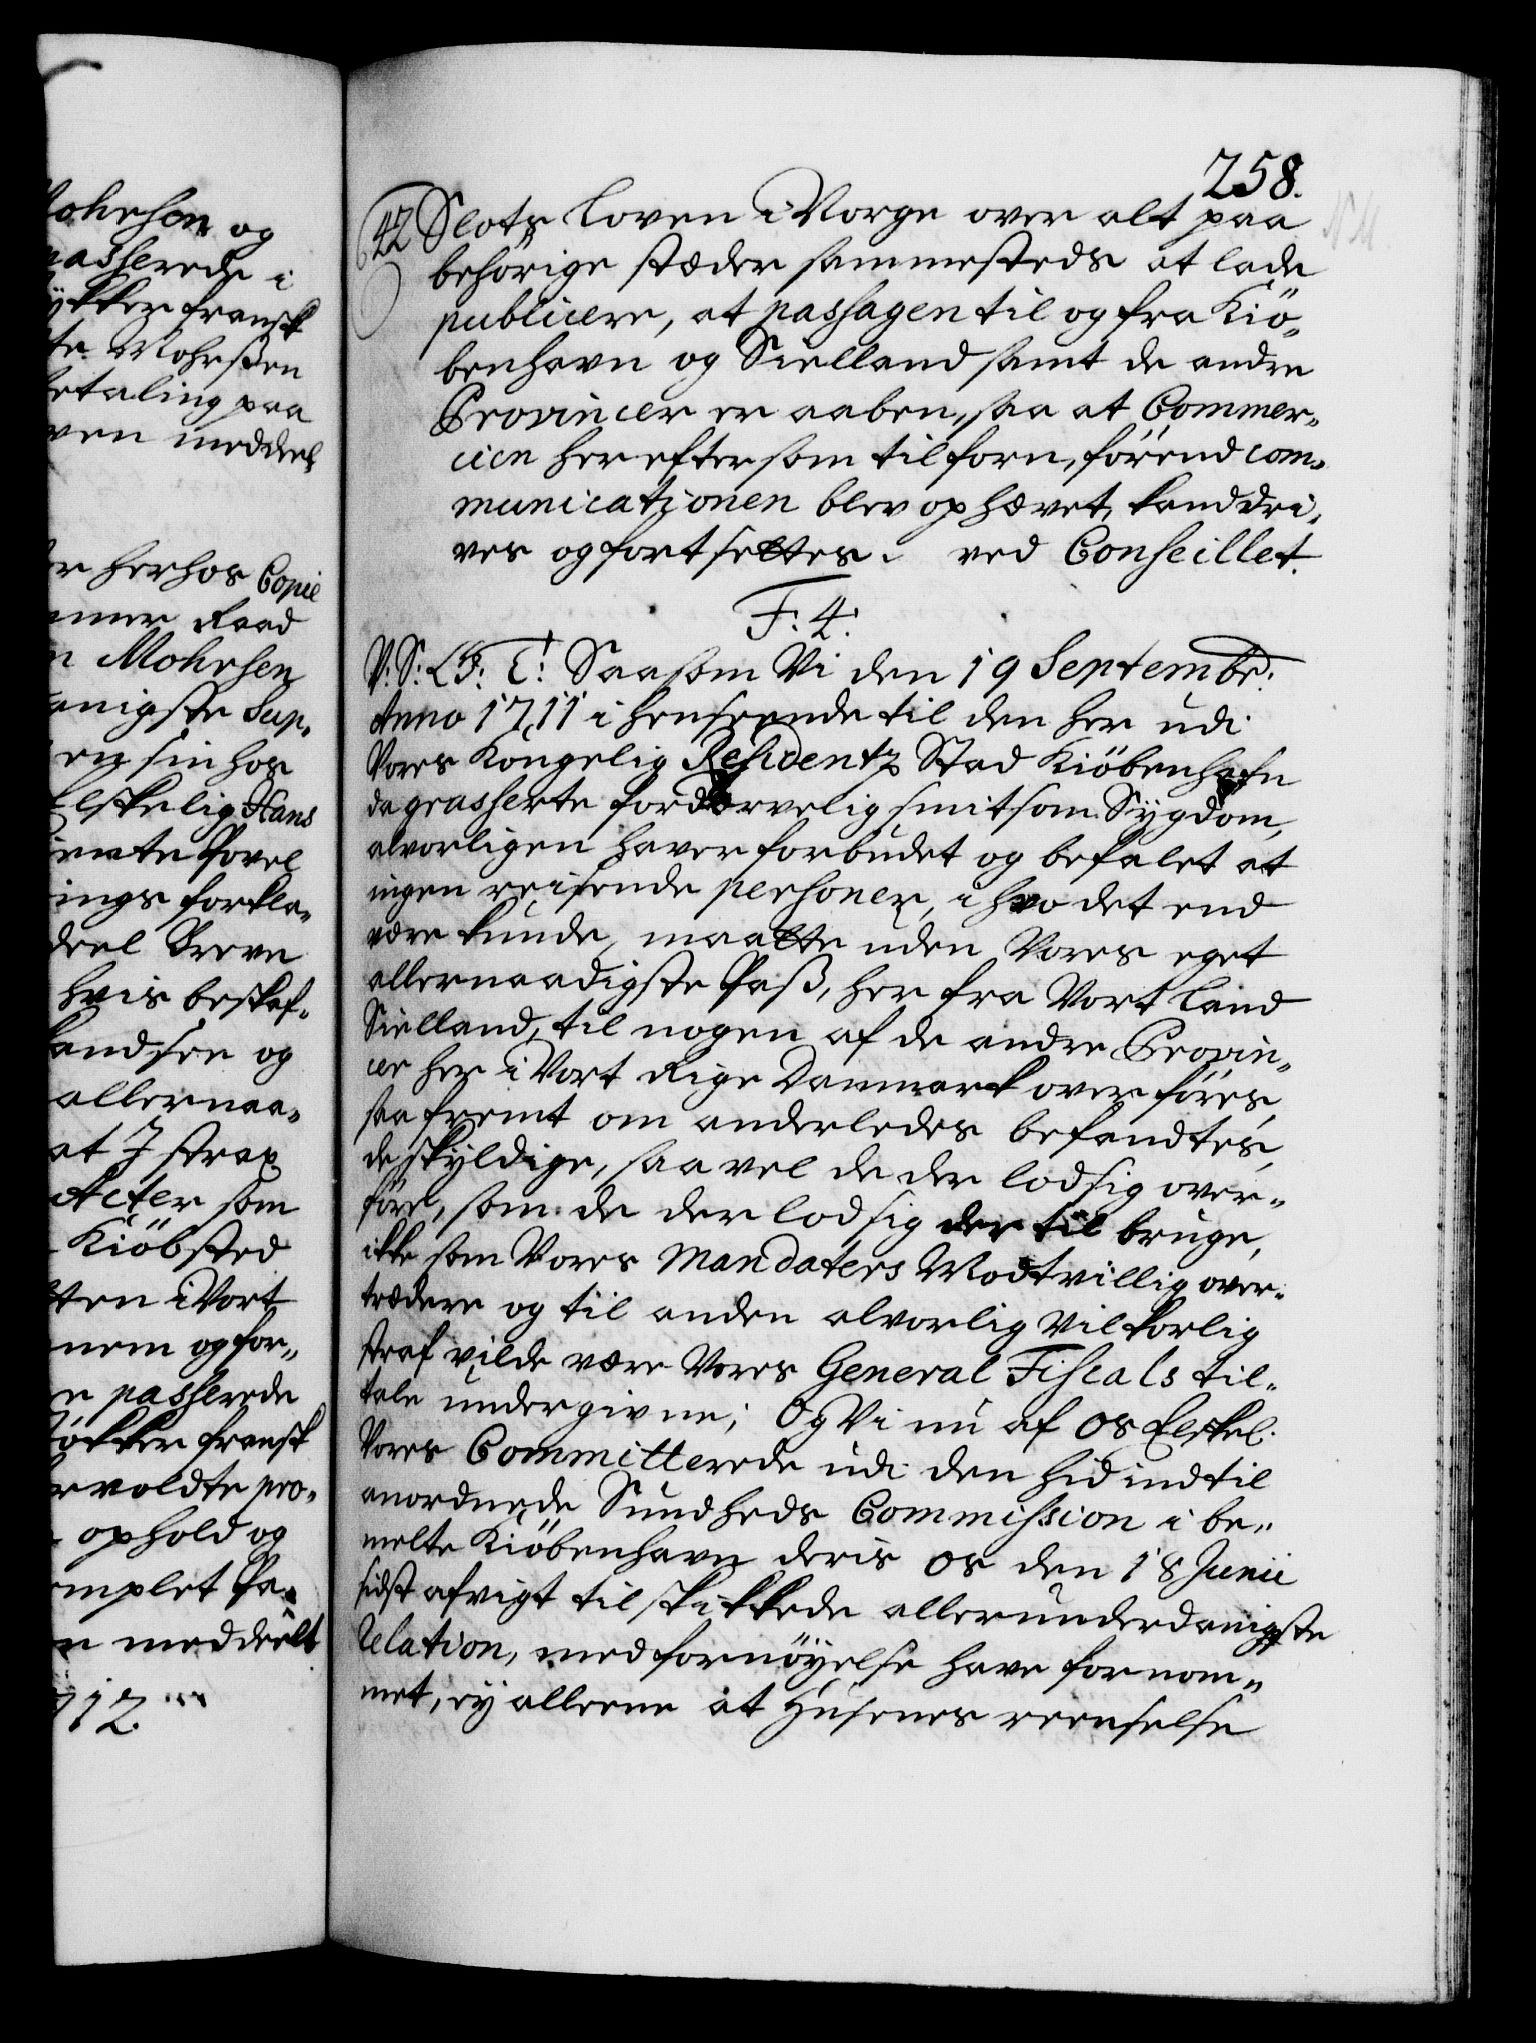 ohrsen og
passerede i
ykker fransk
te Mohrsen
etaling paa
ven meddeel
r herhos Copie
mmer Raad
n Mohrsen
anigste Sup-
en sin hos
Elskelig Hans
ings forkla-
deel Breve
hvis beskaf-
landsen og
allernaa-
at I strax
Acter som
Kiöbsted
ten i Vort
nem og for-
e passerede
ökker fransk
rvoldte pro-
ophold og
mplet Pa-
n meddeelt
712.
258.
42 Slots Loven i Norge over alt paa
behörige stæder sammesteds at lade
publicere, at passagen til og fra Kiö-
benhavn og Sielland samt de andre
Provincer er aaben, saa at Commer-
cien her efter som tilforn, förend com-
municationen blev ophævet, kand dri-
ves og fortsettes. ved Conseillet.
F. 4.
V: S: G: T: Saasom Vi den 19 Septembr:
Anno 1711 i henseende til den her udi
Vores Kongelig Residentz Stad Kiöbenhafn
da grasserte fordærvelig smitsom Sygdom,
alvorligen haver forbudet og befalet at
ingen reisende personer, i hvo det end
være kunde, maatte uden Vores eget
allernaadigste Pass, her fra Vort land
Sielland, til nogen af de andre Provin-
cer her i Vort Rige Danmark over föres,
saa fremt om anderledes befandtes,
de skyldige, saavel de der lod sig over-
före, som de der lod sig der til bruge,
ikke som Vores Mandaters Modtvillig over-
trædere og til anden alvorlig vilkorlig
straf vilde være Vores General Fiscals til-
tale undergivne; Og Vi nu af Os Elskel.
Vores Committerede udi den hid indtil
anordnede Sundheds Commission i be-
melte Kiöbenhavn deris Os den 18 Junii
sidst afvigt tilskikkede allerunderdanigste
Relation, med fornöyelse have fornom-
met, ey alleene at Husenes reenselse